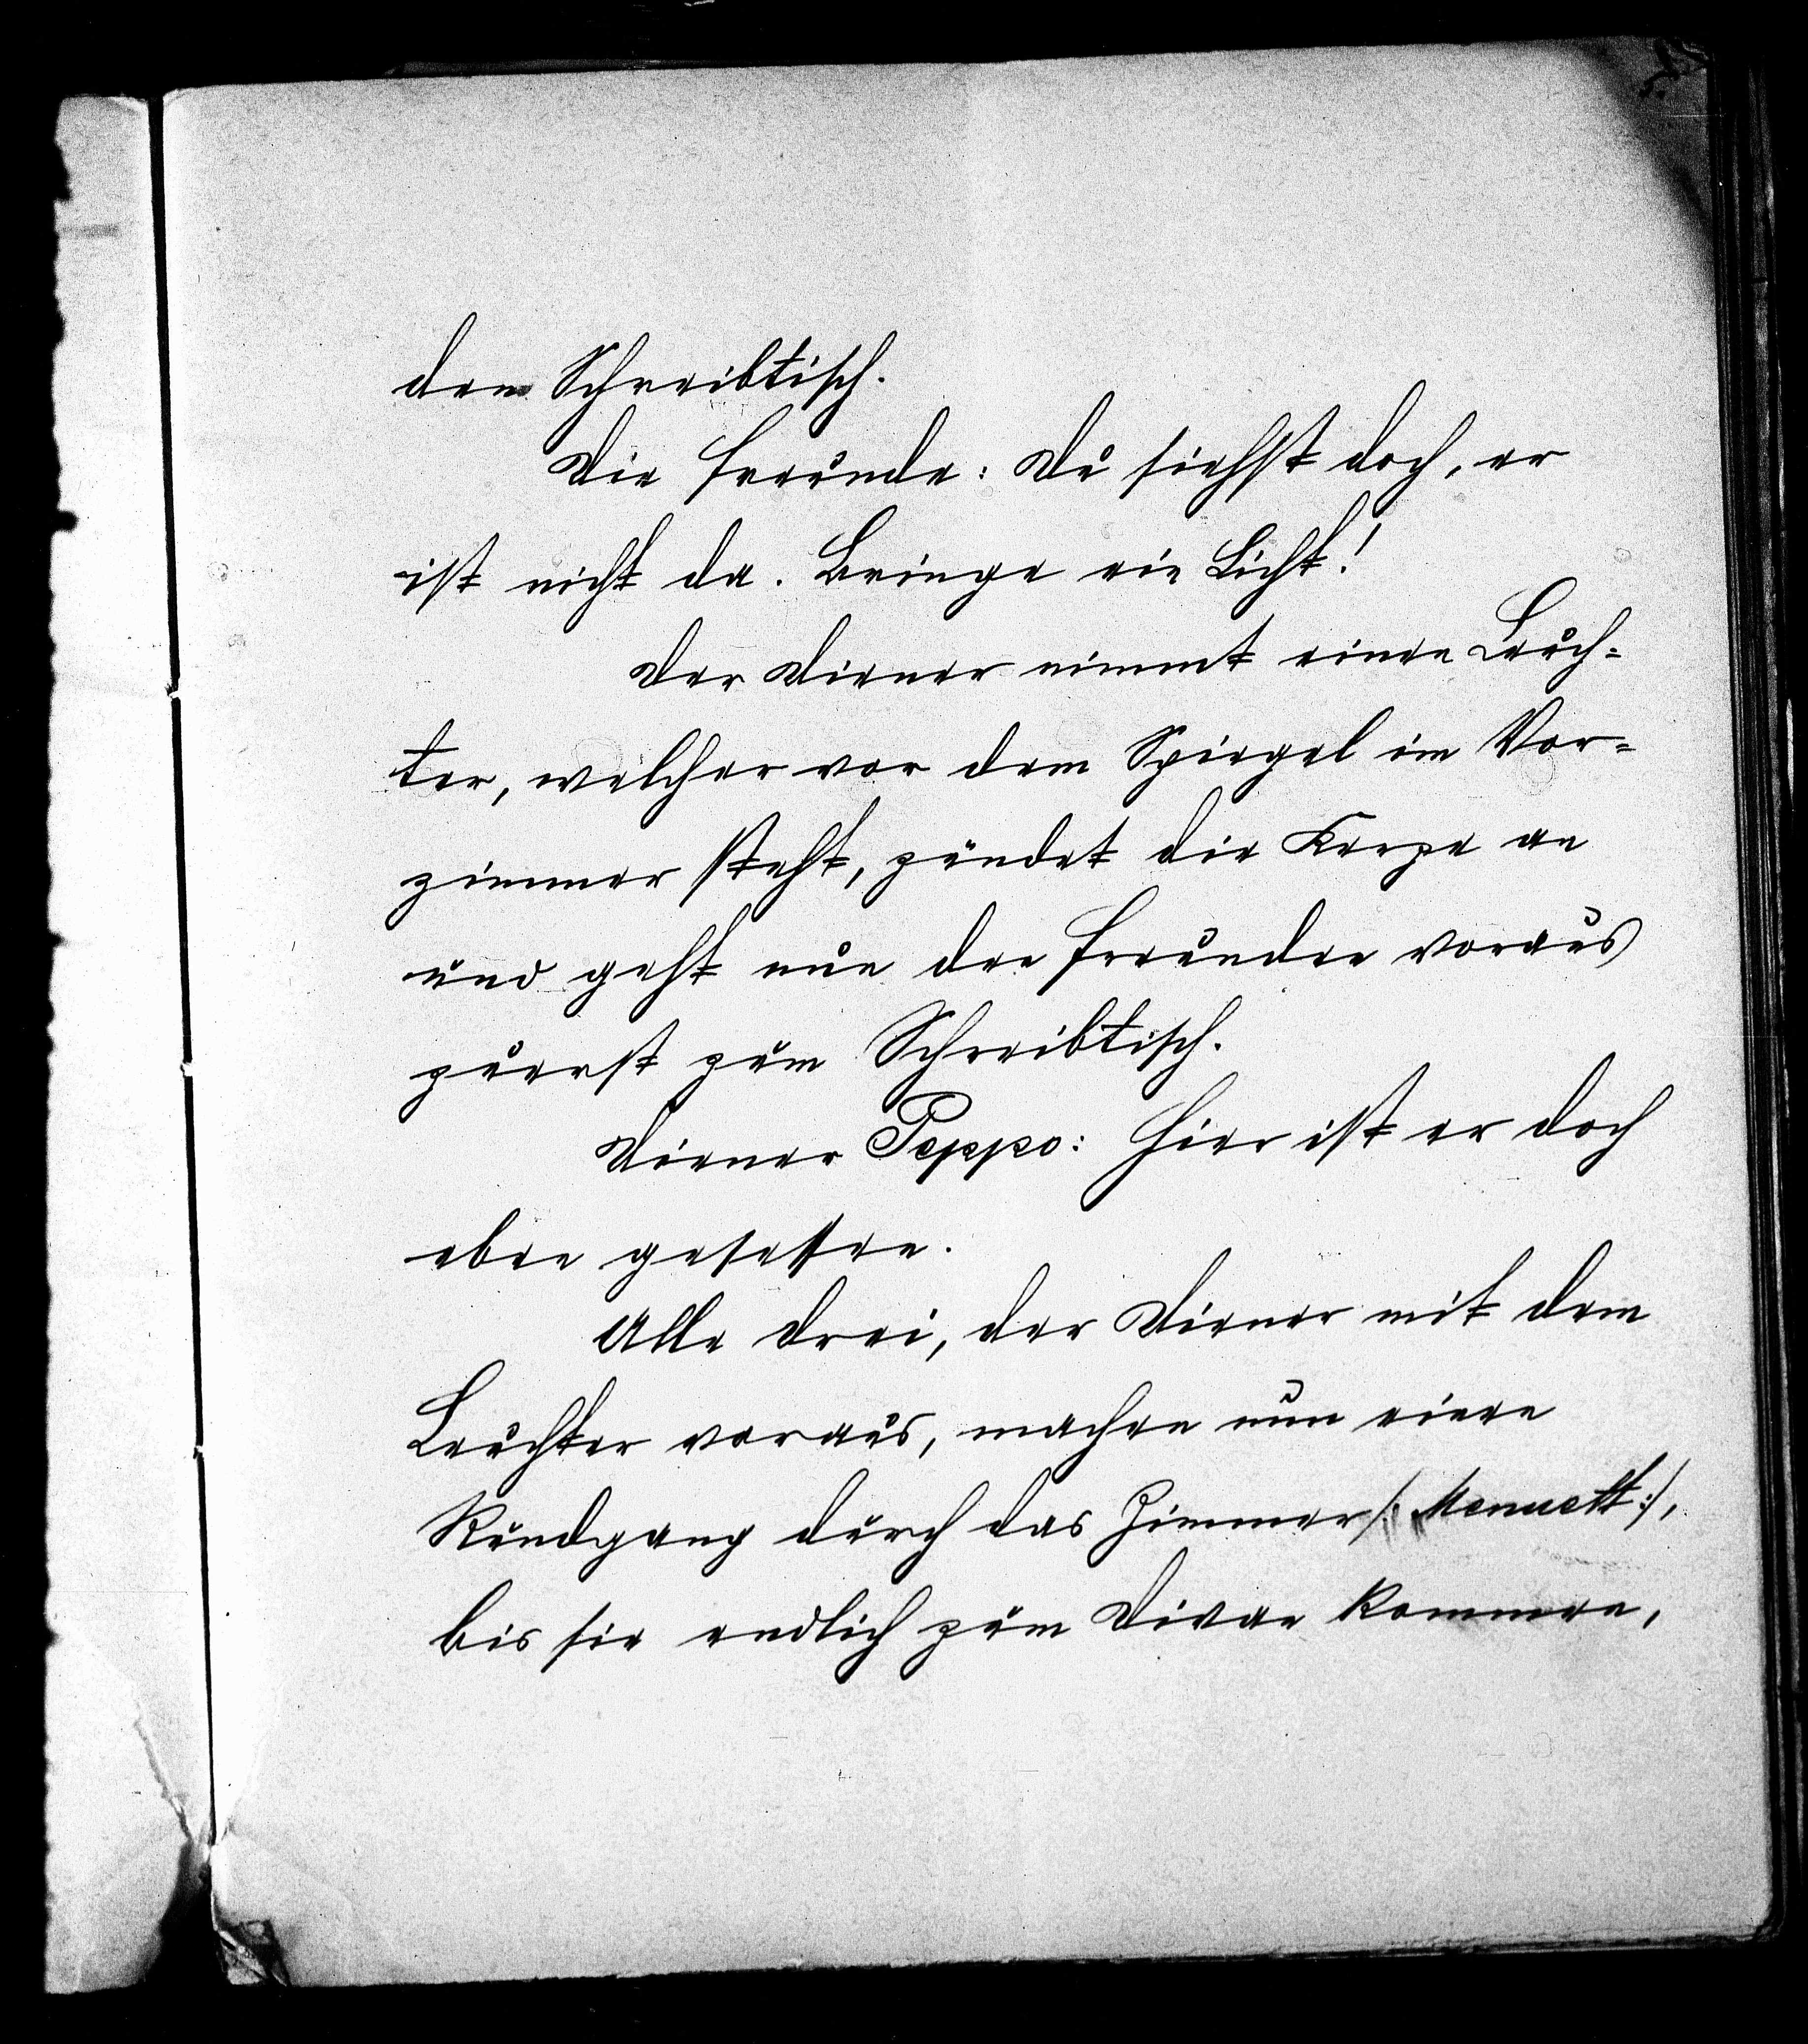 5.
dem Schreibtisch.
Die Freunde: Du siehst doch, er
ist nicht da. Bringe ein Licht!
Der Diener nimmt einen Leuch=
ter, welcher vor dem Spiegel im Vor=
zimmer steht, zündet die Kerze an
und geht nun den Freunden voraus
zuerst zum Schreibtisch.
Diener Peppo: Hier ist er doch
eben gesessen.
Alle drei, der Diener mit dem
Leuchter voraus, machen nun einen
Rundgang durch das Zimmer /: Menuett :/,
bis sie endlich zum Divan kommen,